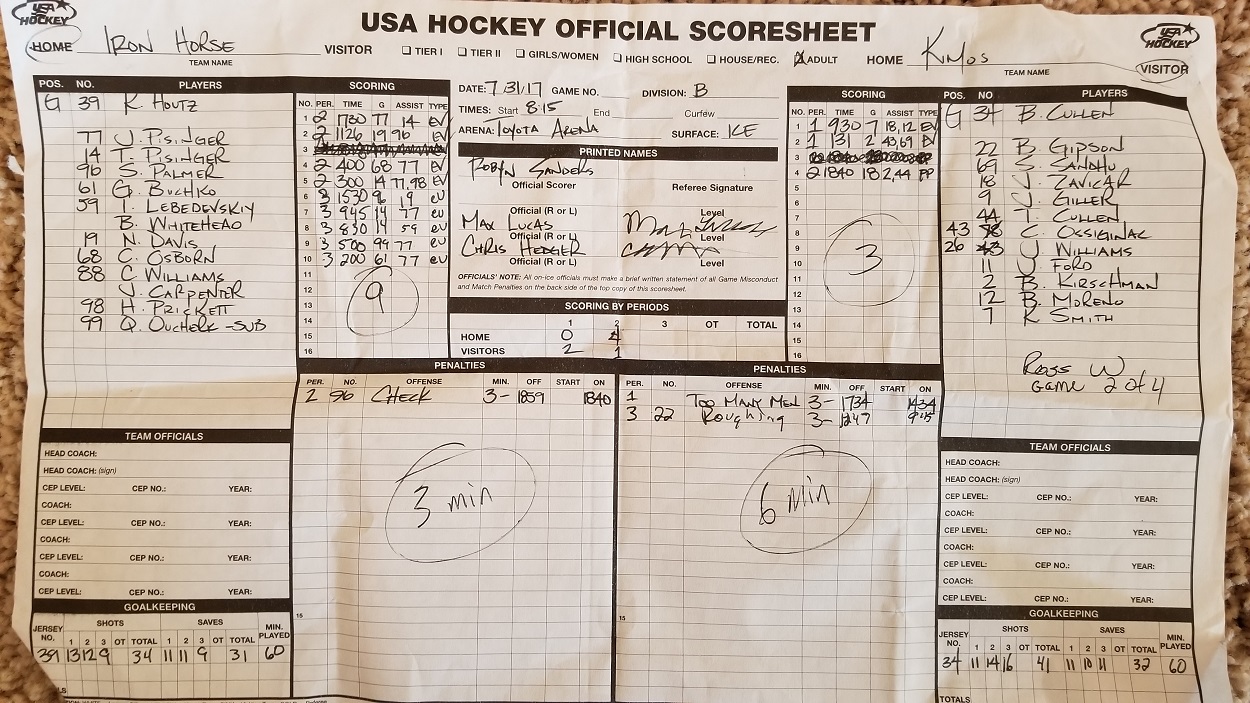 USA HOCKEY
USA HOCKEY OFFICIAL SCORESHEET
USA HOCKEY
HOME IRON HORSE VISITOR ☐ TIER I ☐ TIER II ☐ GIRLS/WOMEN ☐ HIGH SCHOOL ☐ HOUSE/REC. ☒ ADULT HOME KMOS VISITOR
TEAM NAME
TEAM NAME
POS. NO. PLAYERS
G 39 K. HOUTZ
77 J. PISINGER
14 T. PISINGER
96 S. PALMER
61 G. BUCHKO
59 I. LEBEDEVSKIY
B. WHITEHEAD
19 N. DAVIS
68 C. OSBORN
88 C WILLIAMS
J. CARPENTER
98 H. PRICKETT
99 Q. OUCHERK -SUB
SCORING
NO. PER. TIME G ASSIST TYPE
1 2 1730 77 14 EV
2 2 1126 19 96 EV
3
4 2 400 68 77 EV
5 2 300 14 77,98 EV
6 3 1530 96 19 EV
7 3 945 14 77 EV
8 3 830 14 59 EV
9 3 500 99 77 EV
10 3 200 61 77 EV
11
12
13
14
15
16
9
DATE: 7/31/17 GAME NO. DIVISION: B
TIMES: Start 8:15 End Curfew
ARENA: TOYOTA ARENA SURFACE: ICE
PRINTED NAMES
ROBYN SANDERS
Official Scorer Referee Signature
Official (R or L) Level
MAX LUCAS
Official (R or L) Level
CHRIS HEDGER
Official (R or L) Level
OFFICIALS' NOTE: All on-ice officials must make a brief written statement of all Game Misconduct
and Match Penalties on the back side of the top copy of this scoresheet.
SCORING BY PERIODS
1 2 3 OT TOTAL
HOME 0 4
VISITORS 2 1
SCORING
NO. PER. TIME G ASSIST TYPE
1 1 930 7 18,12 EV
2 1 131 2 43,69 EV
3
4 2 1840 18 2,44 PP
5
6
7
8
9
10
11
12
13
14
15
16
3
POS. NO PLAYERS
G 34 B. CULLEN
22 B. GIPSON
69 S. SANDHU
18 J. ZAVICAR
9 J. GILLER
44 T. CULLEN
43 C. OSSIGINAC
26 J. WILLIAMS
11 J FORD
2 B. KIRSCHMAN
12 B. MORENO
7 K SMITH
Ross W
Game 2 of 4
PENALTIES
PER. NO. OFFENSE MIN. OFF START ON
2 96 CHECK 3- 1859 1840
3 min
15
PENALTIES
PER. NO. OFFENSE MIN. OFF START ON
1 TOO MANY MEN 3- 1734 1434
3 22 Roughing 3- 1247 945
6 min
15
TEAM OFFICIALS
HEAD COACH:
HEAD COACH: (sign)
CEP LEVEL: CEP NO.: YEAR:
COACH:
CEP LEVEL: CEP NO.: YEAR:
COACH:
CEP LEVEL: CEP NO.: YEAR:
COACH:
CEP LEVEL: CEP NO.: YEAR:
GOALKEEPING
JERSEY NO. SHOTS SAVES MIN. PLAYED
1 2 3 OT TOTAL 1 2 3 OT TOTAL
39 13 12 9 34 11 11 9 31 60
TEAM OFFICIALS
HEAD COACH:
HEAD COACH: (sign)
CEP LEVEL: CEP NO.: YEAR:
COACH:
CEP LEVEL: CEP NO.: YEAR:
COACH:
CEP LEVEL: CEP NO.: YEAR:
COACH:
CEP LEVEL: CEP NO.: YEAR:
GOALKEEPING
JERSEY NO. SHOTS SAVES MIN. PLAYED
1 2 3 OT TOTAL 1 2 3 OT TOTAL
34 11 14 16 41 11 10 11 32 60
TOTALS